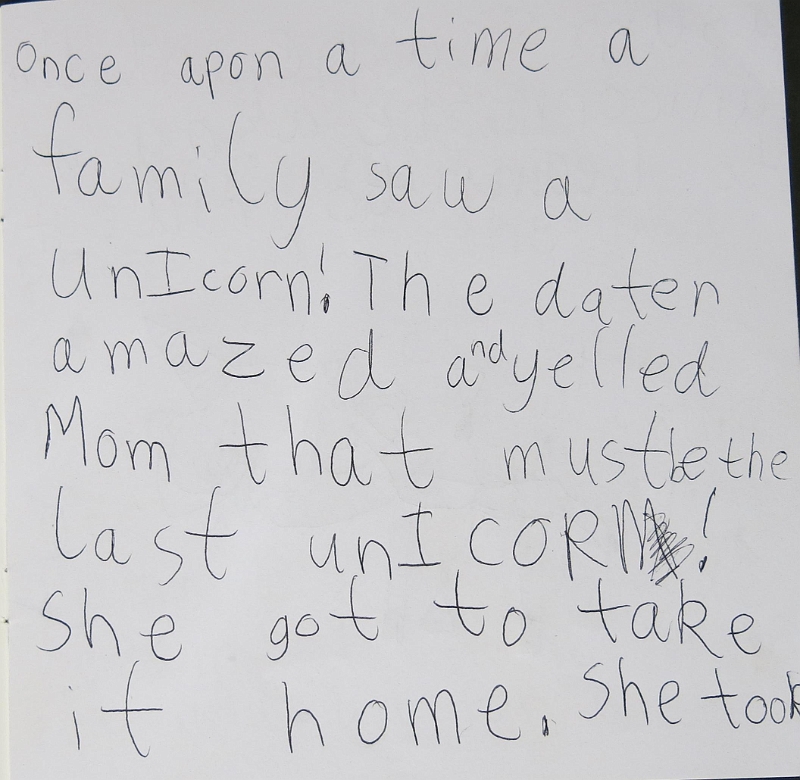 Once apon a time a
family saw a
UnIcorn! The daten
amazed and yelled
Mom that must be the
last unICORN!
She got to take
it home. She took